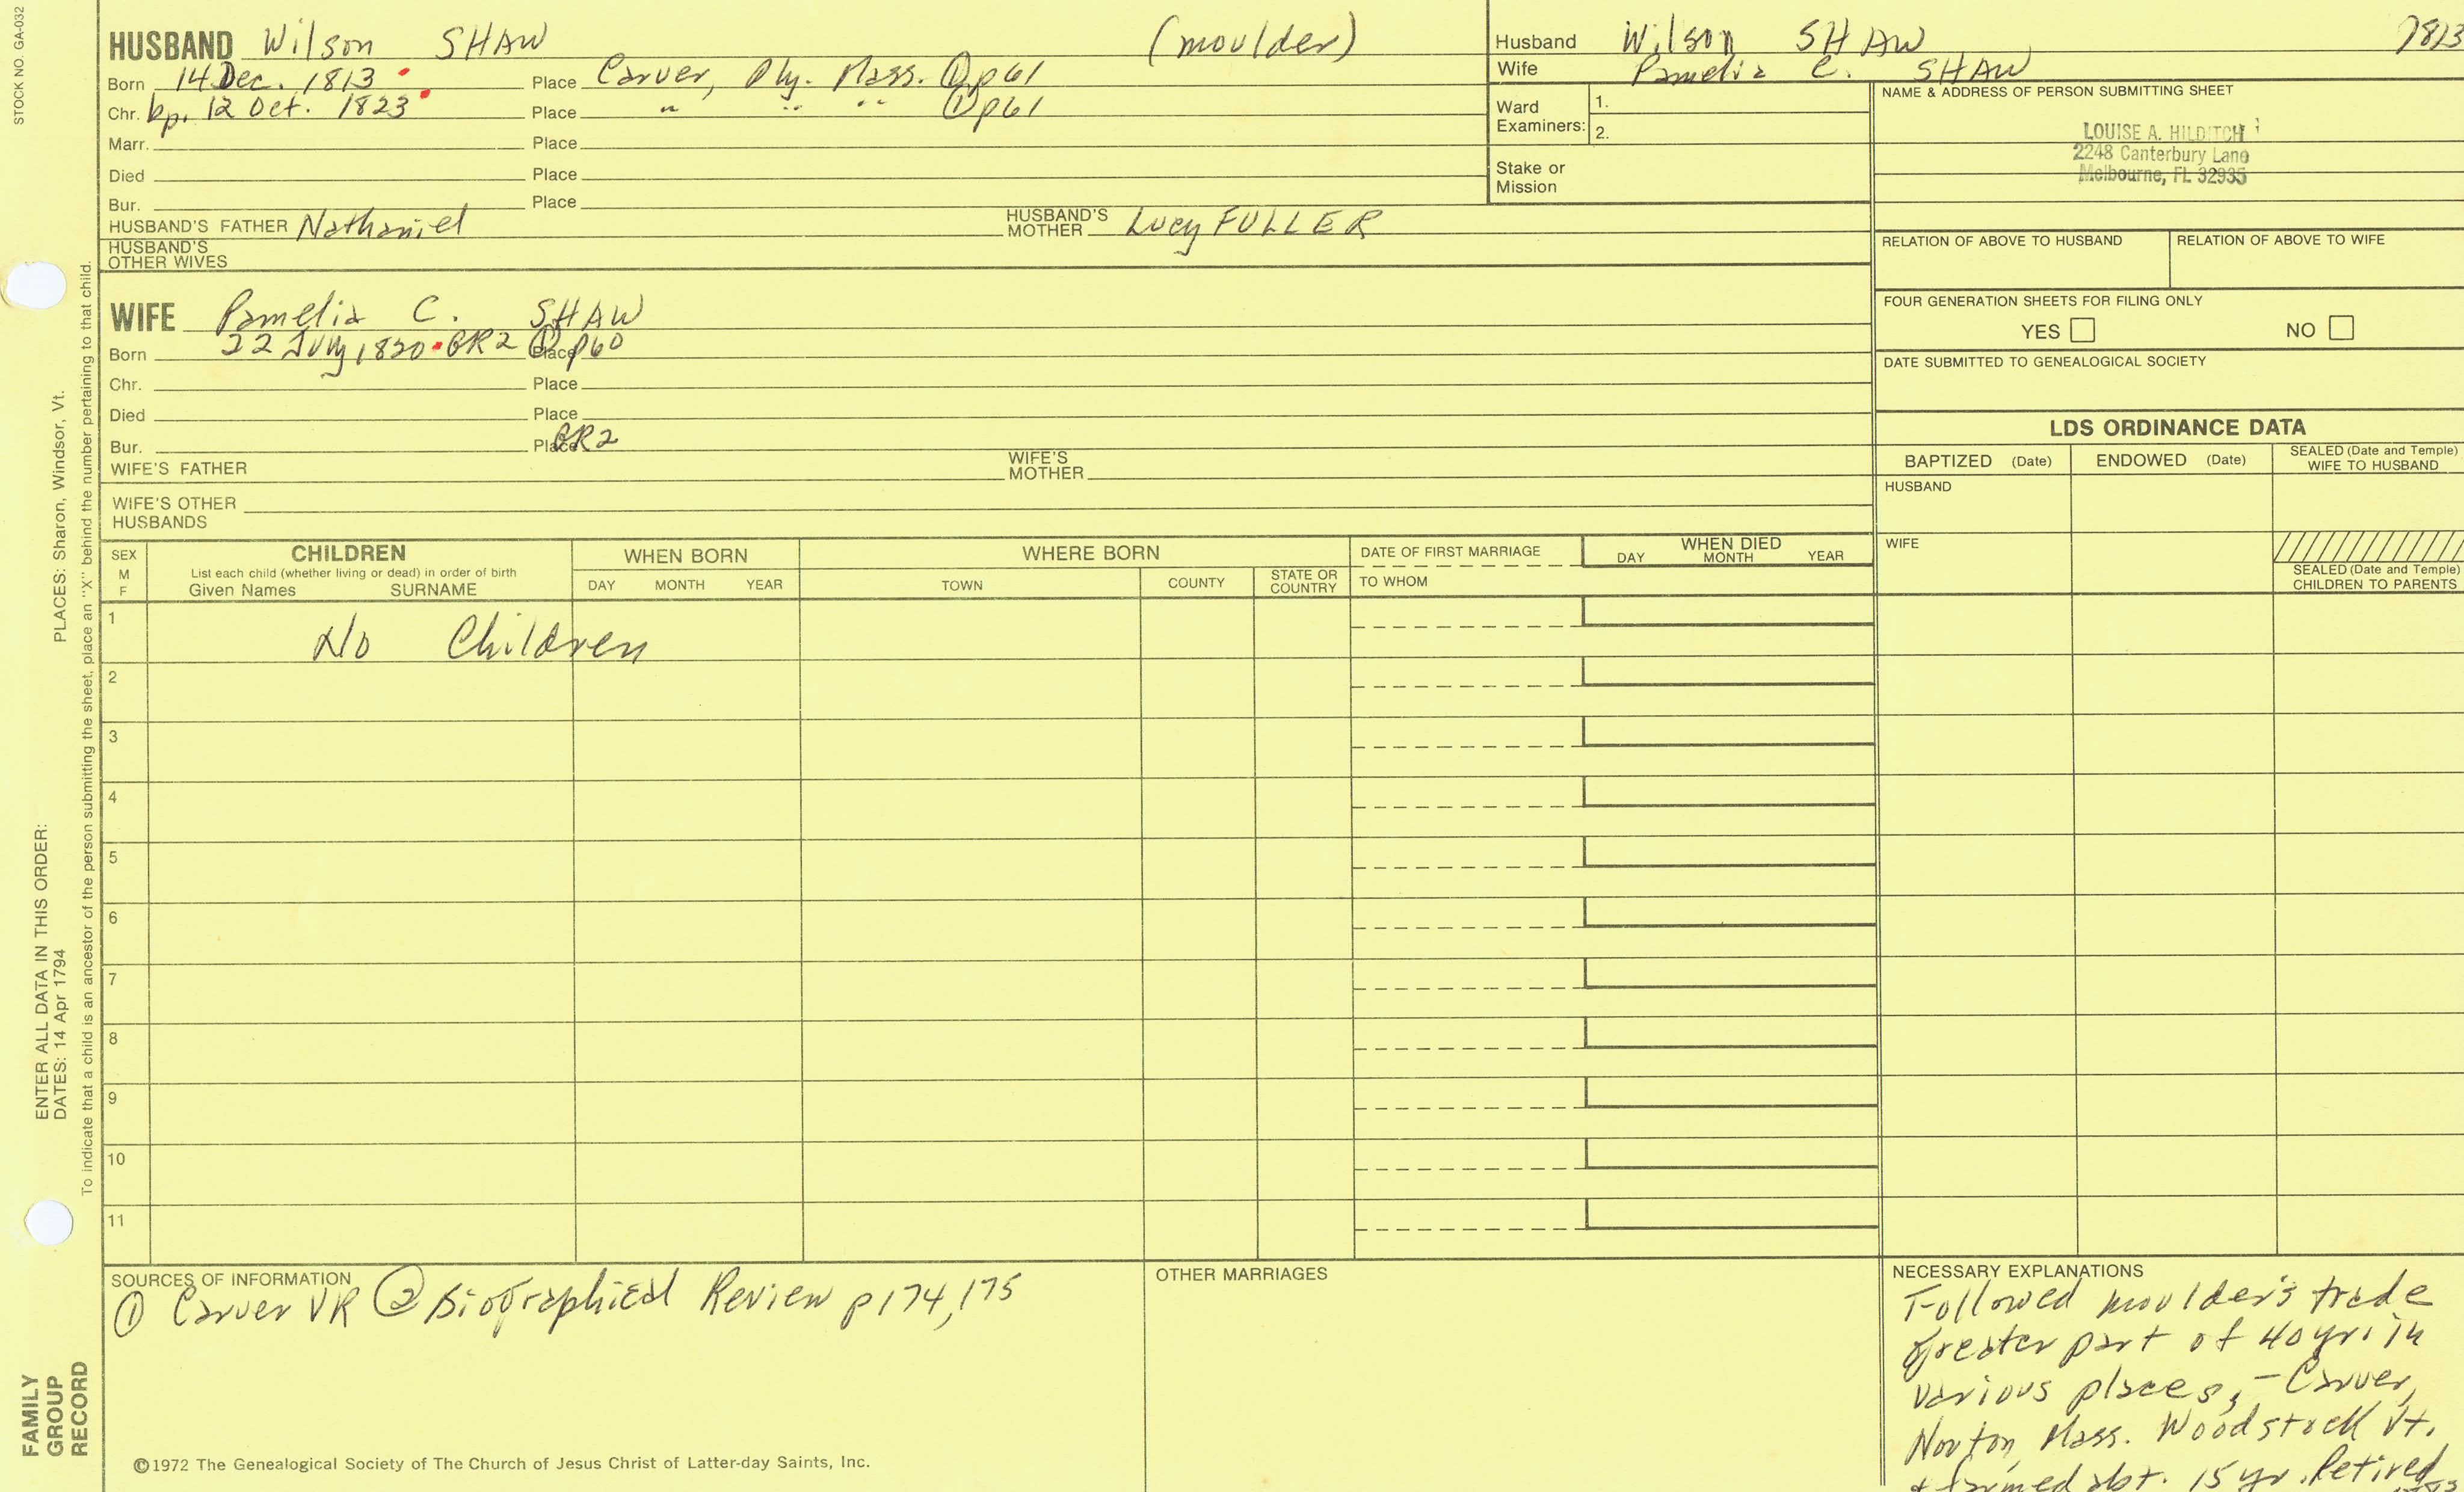 STOCK NO. GA-032
HUSBAND Wilson SHAW (moulder)
Born 14 Dec. 1813 Place Carver, Ply. Mass. ① p61
Chr. bp. 12 Oct. 1823 Place " " " ① p61
Marr. Place
Died Place
Bur. Place
HUSBAND'S FATHER Nathaniel HUSBAND'S MOTHER Lucy FULLER
HUSBAND'S
OTHER WIVES
WIFE Pamelia C. SHAW
Born 22 July 1820 GR2 Place ① p60
Chr. Place
Died Place
Bur. Place GR2
WIFE'S FATHER WIFE'S MOTHER
WIFE'S OTHER
HUSBANDS
Husband Wilson SHAW 1813
Wife Pamelia C. SHAW
Ward
Examiners: 1.
2.
Stake or
Mission
NAME & ADDRESS OF PERSON SUBMITTING SHEET
LOUISE A. HILDITCH
2248 Canterbury Lane
Melbourne, FL 32935
RELATION OF ABOVE TO HUSBAND RELATION OF ABOVE TO WIFE
FOUR GENERATION SHEETS FOR FILING ONLY
YES NO
DATE SUBMITTED TO GENEALOGICAL SOCIETY
LDS ORDINANCE DATA
BAPTIZED (Date) ENDOWED (Date) SEALED (Date and Temple)
WIFE TO HUSBAND
HUSBAND
WIFE
SEALED (Date and Temple)
CHILDREN TO PARENTS
SEX
M
F
CHILDREN
List each child (whether living or dead) in order of birth
Given Names SURNAME
WHEN BORN
DAY MONTH YEAR
WHERE BORN
TOWN COUNTY STATE OR
COUNTRY
DATE OF FIRST MARRIAGE
TO WHOM
WHEN DIED
DAY MONTH YEAR
1 No Children
2
3
4
5
6
7
8
9
10
11
SOURCES OF INFORMATION
① Carver VR ② Biographical Review p174,175
OTHER MARRIAGES
NECESSARY EXPLANATIONS
Followed moulder's trade
greater part of 40 yrs in
various places, - Carver,
Norton, Mass. Woodstock Vt.
& farmed abt. 15 yr. Retired
©1972 The Genealogical Society of The Church of Jesus Christ of Latter-day Saints, Inc.
ENTER ALL DATA IN THIS ORDER:
DATES: 14 Apr 1794 PLACES: Sharon, Windsor, Vt.
To indicate that a child is an ancestor of the person submitting the sheet, place an "X" behind the number pertaining to that child.
FAMILY
GROUP
RECORD